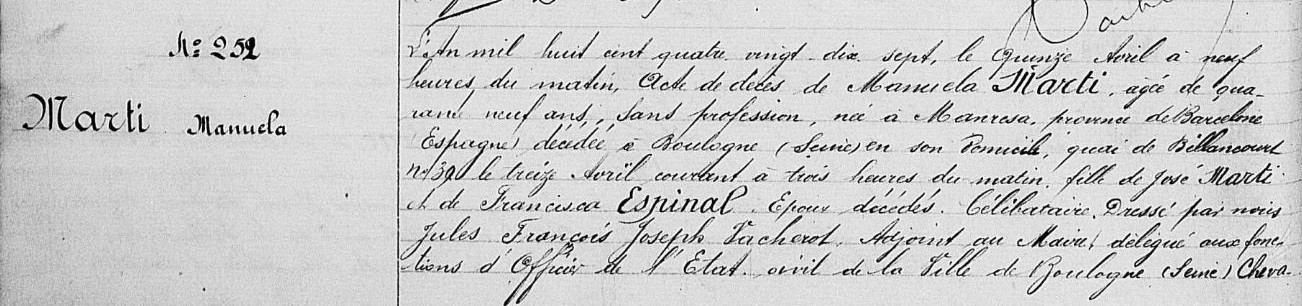 N° 252
Marti Manuela
L'An mil huit cent quatre vingt dix sept, le Quinze Avril à neuf
heures du matin, Acte de décès de Manuela Marti, agée de qua-
rante neuf ans, sans profession, née à Manresa, province de Barcelone
(Espagne) décédée à Boulogne (Seine) en son Domicile, quai de Billancourt
n° 39 le treize Avril courant à trois heures du matin. fille de José Marti
et de Francisca Espinal. Epoux décédés. Célibataire. Dressé par nous
Jules François Joseph Vacherot, Adjoint au Maire, délégué aux fonc-
tions d'Officier de l'Etat civil de la Ville de Boulogne (Seine) Cheva-